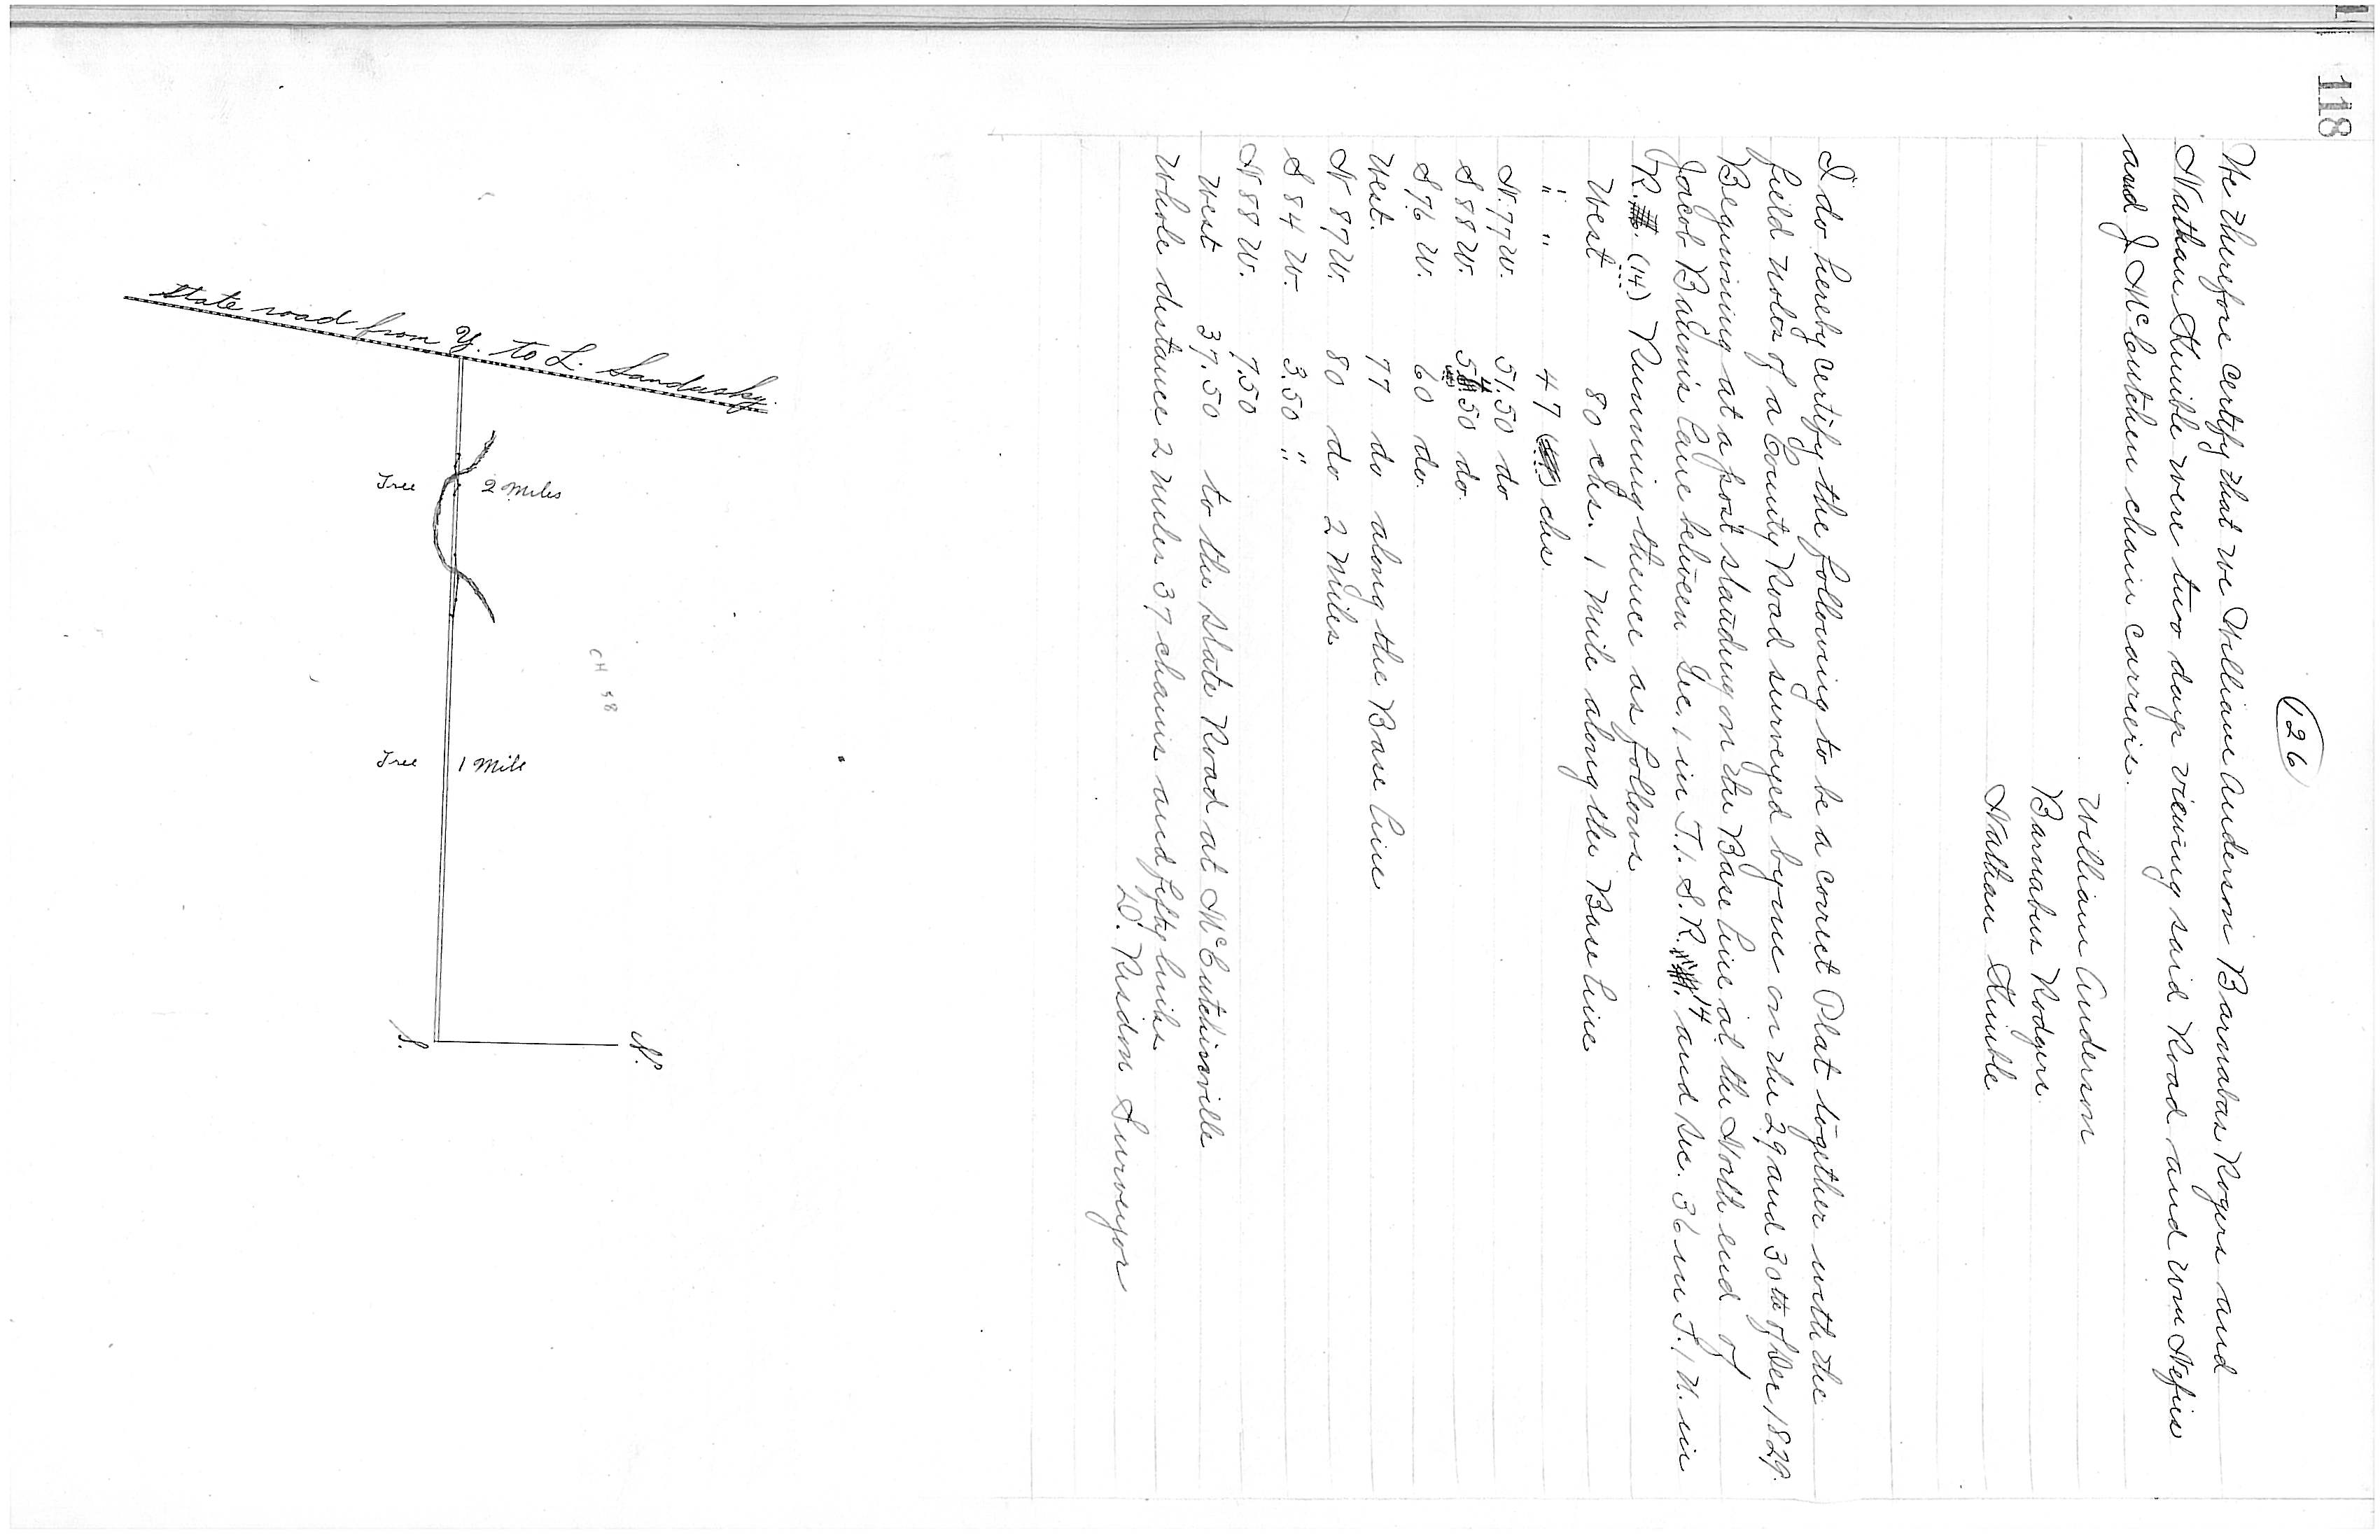 118
(126)
We therefore certify that we William Anderson Barnabas Rogers and
Nathan were two days viewing said Road and Wm
and J. McCutchen chain carriers.
William Anderson
Barnabus Rodgers
Nathan
I do hereby certify the following to be a correct Plat together with the
field notes of a County Road surveyed by me on the 29 and 30th of Dec 1829.
Beginning at a post standing on the Base line at the North end of
Jacob lane between Sec, 1 in T. 1. S. R. 14 and Sec. 36 in T. 1 N. in
R. (14) Running thence as follows
West 80 chs. 1 mile along the Base line
" " 47 chs
N. 77 W. 51.50 do
S 88 W. 50 do
S 76 W. 60 do.
West. 77 do along the Base line
N 87 W. 80 do 2 Miles
S 84 W. 3.50 "
N 88 W. 7.50
West 37.50 to the State Road at McCutchinsville
Whole distance 2 miles 37 chains and fifty links
D. Risdon Surveyor
State road from Y. to L. Sandusky.
Tree 2 miles
CH 58
Tree 1 Mile
S. N.